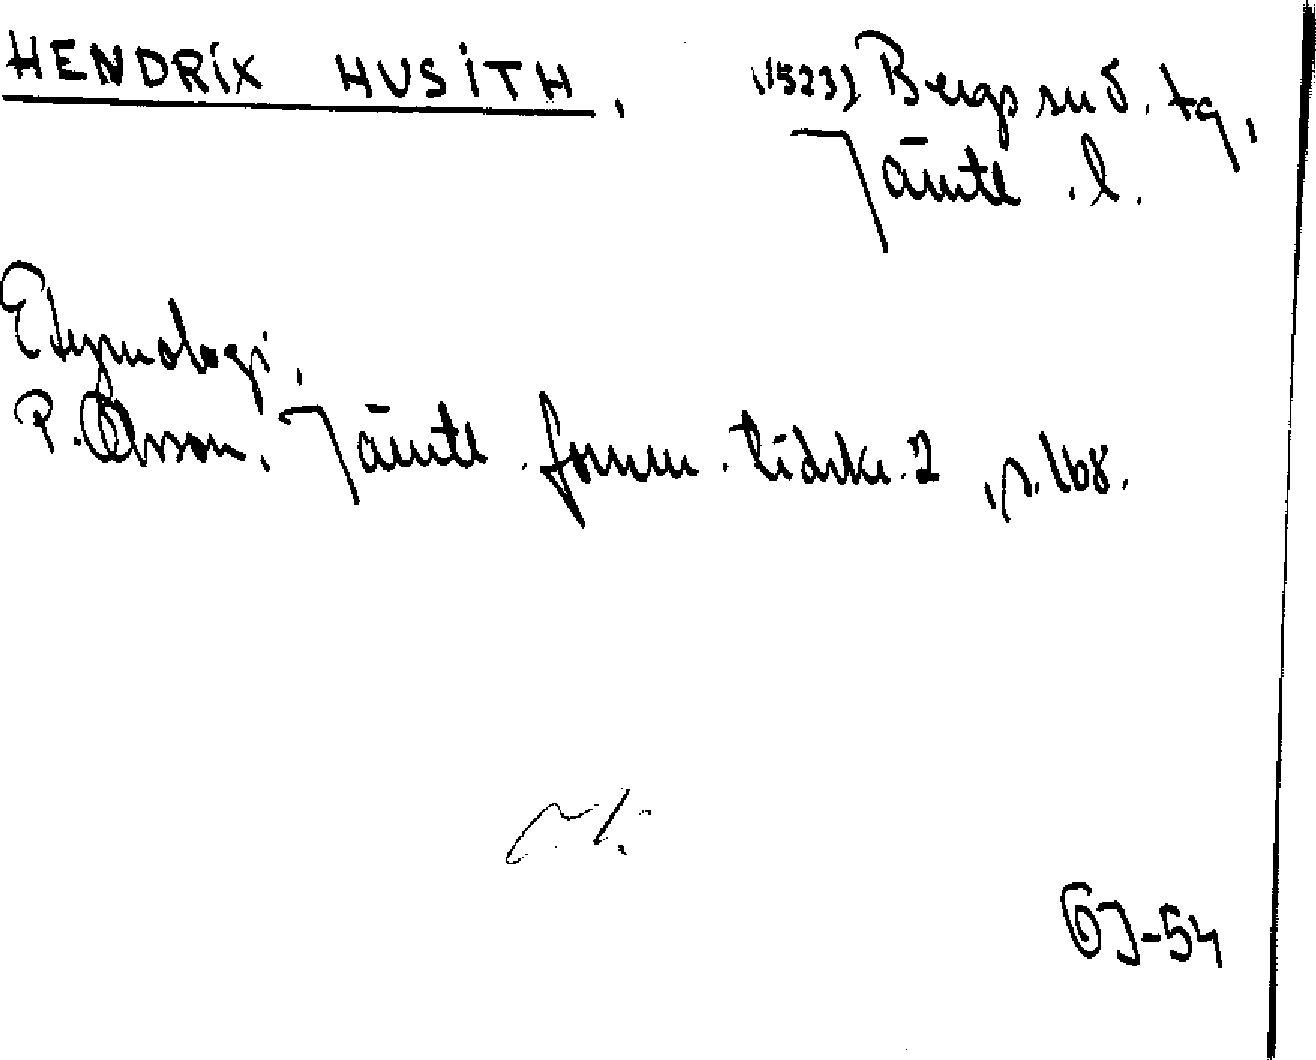 HENDRIX HUSITH, (1523) Bergs sn o. tg,
Jämtl. l.
Etymologi.
P. Olsson, Jämtl. fornm. tidskr. 2, s. 168.
GJ-54